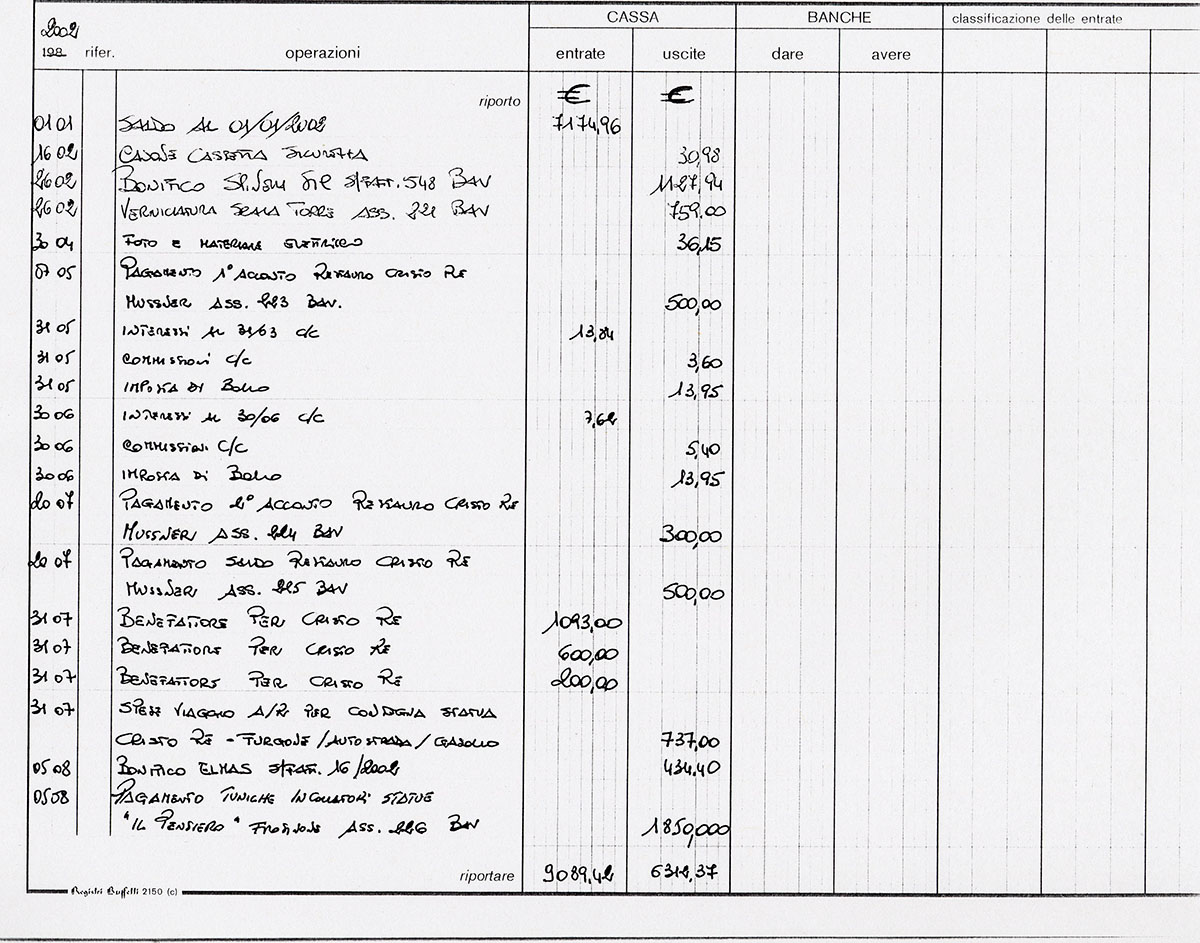 CASSA BANCHE classificazione delle entrate
2002
198 rifer. operazioni entrate uscite dare avere
riporto € €
01 01 SALDO AL 01/01/2002 7174,96
16 02 CANONE CASSETTA SICUREZZA 30,98
26 02 BONIFICO S/FATT. 548 BAV 1127,94
26 02 VERNICIATURA SCALA TORRE ASS. 222 BAV 759.00
30 04 FOTO E MATERIALE ELETTRICO 36,15
07 05 PAGAMENTO 1° ACCONTO RESTAURO CRISTO RE
MUSSNER ASS. 223 BAV. 500,00
31 05 INTERESSI AL 31/03 C/C 13,84
31 05 COMMISSIONI C/C 3,60
31 05 IMPOSTA DI BOLLO 13,95
30 06 INTERESSI AL 30/06 C/C 7,62
30 06 COMMISSIONI C/C 5,40
30 06 IMPOSTA DI BOLLO 13,95
20 07 PAGAMENTO 2° ACCONTO RESTAURO CRISTO RE
MUSSNER ASS. 224 BAV 300,00
20 07 PAGAMENTO SALDO RESTAURO CRISTO RE
MUSSNER ASS. 225 BAV 500,00
31 07 BENEFATTORE PER CRISTO RE 1093,00
31 07 BENEFATTORE PER CRISTO RE 600,00
31 07 BENEFATTORE PER CRISTO RE 200,00
31 07 SPESE VIAGGIO A/R PER CONSEGNA STATUA
CRISTO RE - FURGONE/AUTOSTRADA/GASOLIO 737,00
05 08 BONIFICO ELMAS S/FATT. 16/2002 434.40
05 08 PAGAMENTO TUNICHE INCOLLATORI STATUE
"IL PENSIERO" FROSINONE ASS. 226 BAV 1850,000
riportare 9089,42 6312,37
Registri Buffetti 2150 (c)